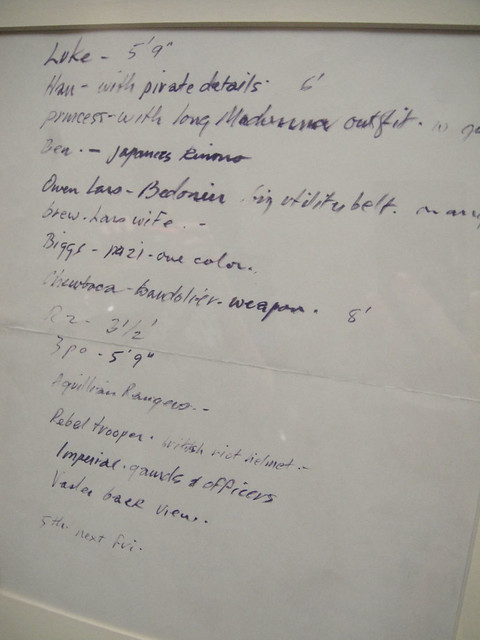 Luke - 5'9"
Han - with pirate details. 6'
princess - with long Madonna outfit.
Ben. - Japanees Kimono
Owen Lars - Bedouin big utility belt.
brew. Lars wife. -
Biggs - nazi - one color.
Chewbaca - bandolier - weapon. 8'
R2 - 3 1/2'
3po - 5'9"
Aquillian Rangers. -
Rebel trooper. british riot helmet. -
Imperial. guards & officers
Vader back view..
5th. next fri.